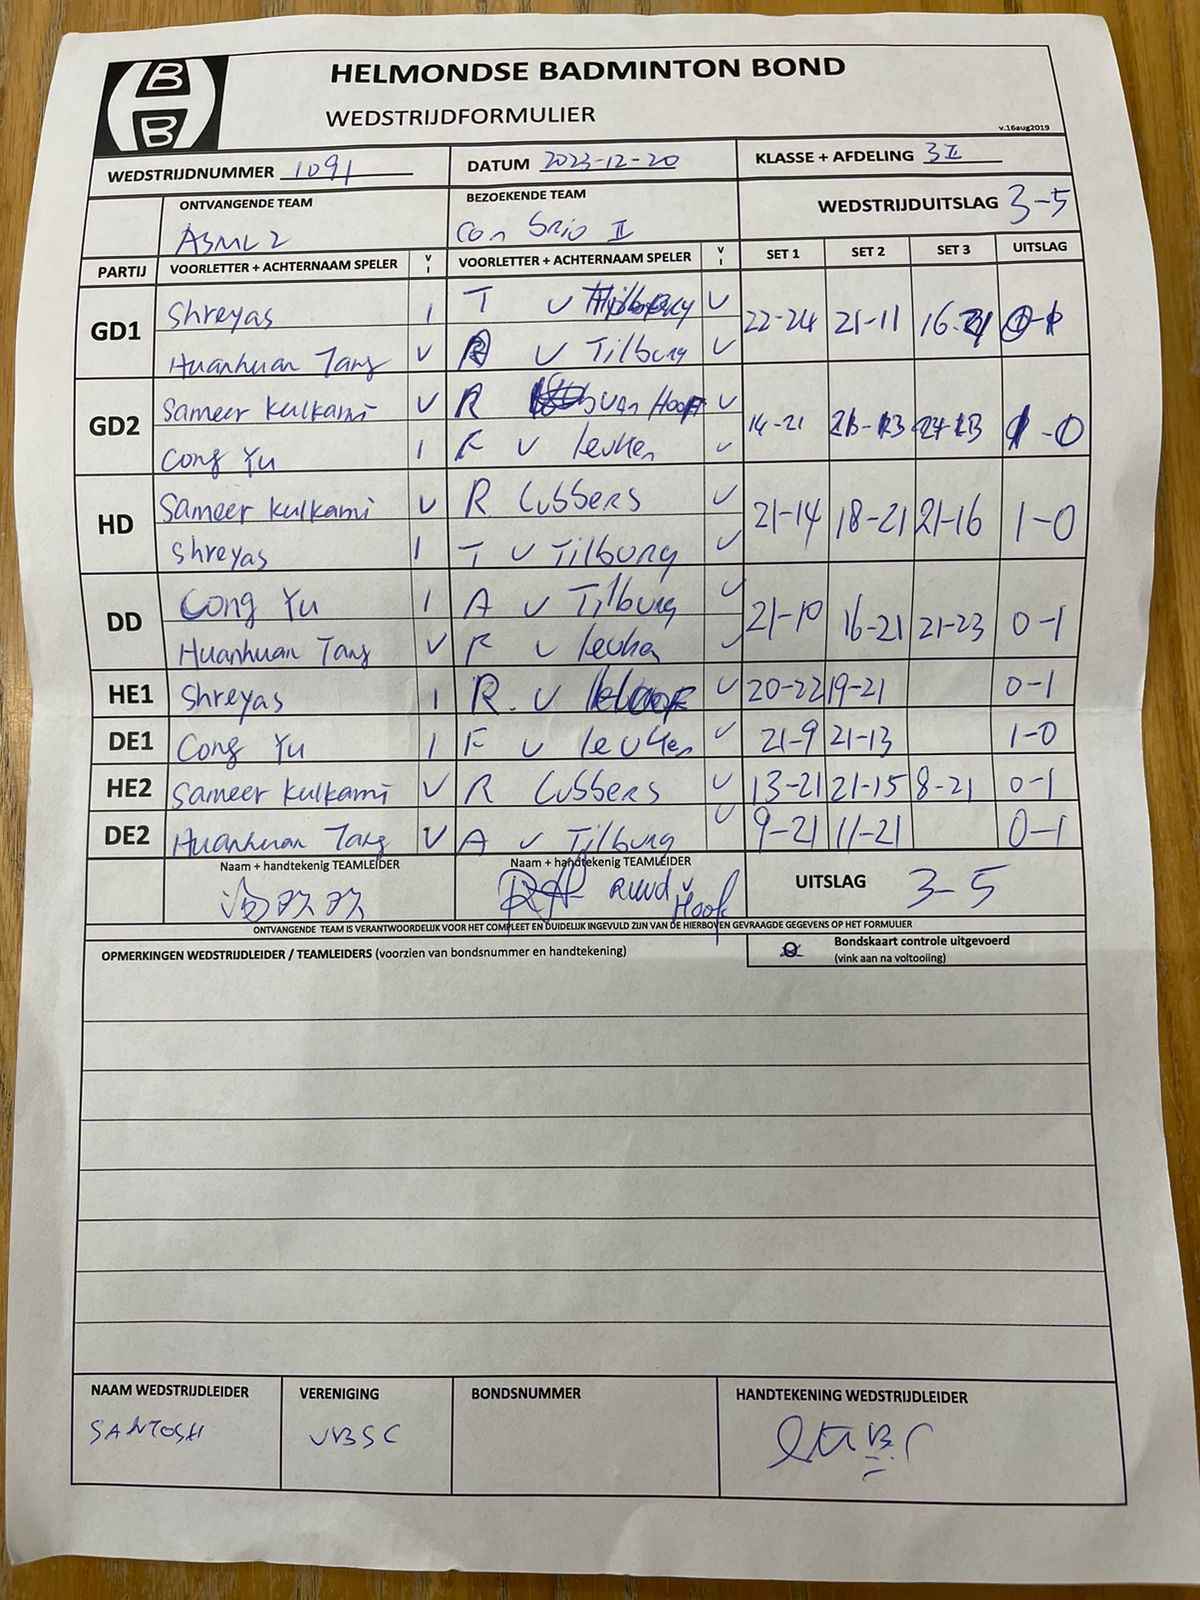 B
B
HELMONDSE BADMINTON BOND
WEDSTRIJDFORMULIER
v.16aug2019
WEDSTRIJDNUMMER 1091 DATUM 2023-12-20 KLASSE + AFDELING 3 II
ONTVANGENDE TEAM BEZOEKENDE TEAM WEDSTRIJDUITSLAG 3-5
ASML 2 Con Brio II
PARTIJ VOORLETTER + ACHTERNAAM SPELER V I VOORLETTER + ACHTERNAAM SPELER V I SET 1 SET 2 SET 3 UITSLAG
GD1 Shreyas I T v V 22-24 21-11 16-21 0-1
Huanhuan Tang V v Tilburg V
GD2 Sameer Kulkarni V R van Hooff V 14-21 1-0
Cong Yu I F v Leuken V
HD Sameer Kulkarni V R Lubbers V 21-14 18-21 21-16 1-0
Shreyas I T v Tilburg V
DD Cong Yu I A v Tilburg V 21-10 16-21 21-23 0-1
Huanhuan Tang V F v Leuken V
HE1 Shreyas I R. v V 20-22 19-21 0-1
DE1 Cong Yu I F v Leuken V 21-9 21-13 1-0
HE2 Sameer Kulkarni V R Lubbers V 13-21 21-15 8-21 0-1
DE2 Huanhuan Tang V A v Tilburg V 9-21 11-21 0-1
Naam + handtekenig TEAMLEIDER Naam + handtekenig TEAMLEIDER UITSLAG 3-5
Ruud v Hoof
ONTVANGENDE TEAM IS VERANTWOORDELIJK VOOR HET COMPLEET EN DUIDELIJK INGEVULD ZIJN VAN DE HIERBOVEN GEVRAAGDE GEGEVENS OP HET FORMULIER
OPMERKINGEN WEDSTRIJDLEIDER / TEAMLEIDERS (voorzien van bondsnummer en handtekening) Bondskaart controle uitgevoerd
(vink aan na voltooiing)
NAAM WEDSTRIJDLEIDER VERENIGING BONDSNUMMER HANDTEKENING WEDSTRIJDLEIDER
SANTOSH VBSC